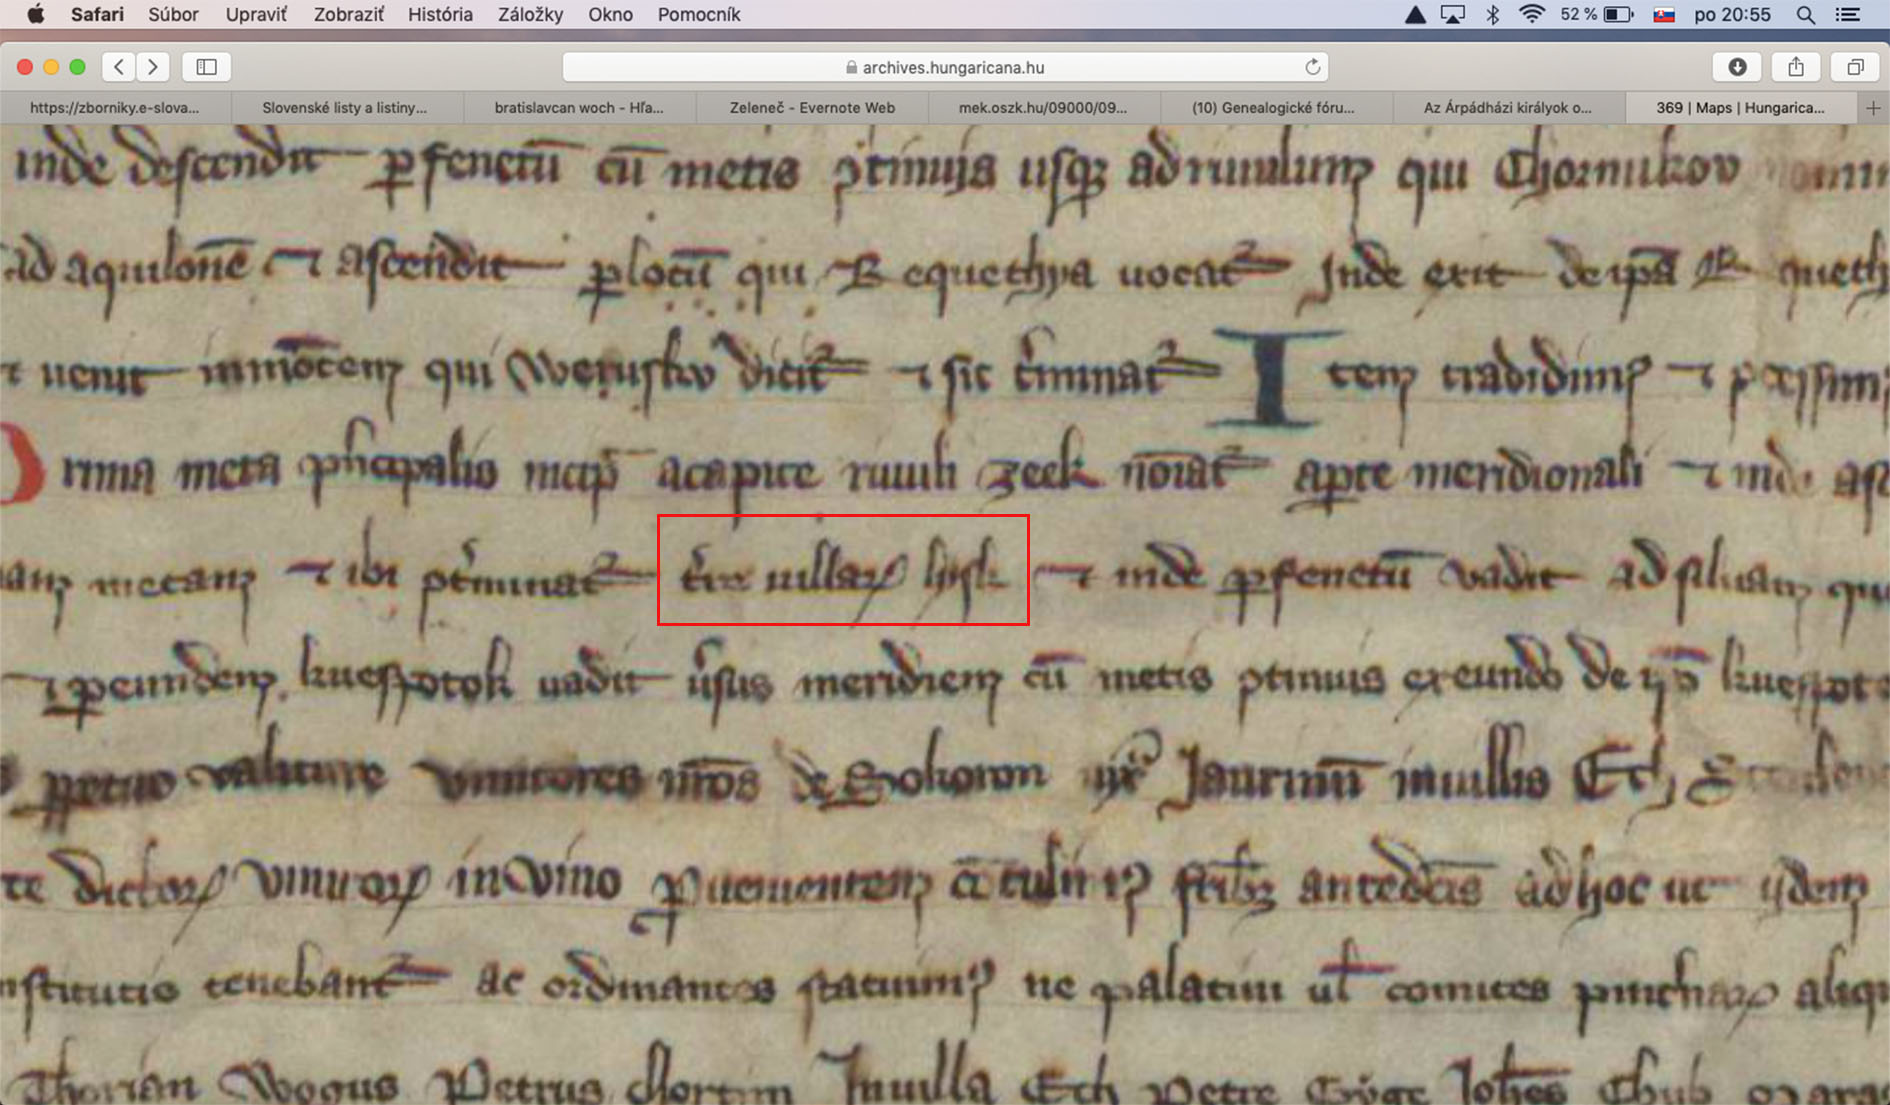 Safari Súbor Upraviť Zobraziť História Záložky Okno Pomocník 52 % po 20:55
archives.hungaricana.hu
https://zborniky.e-slova... Slovenské listy a listiny... bratislavcan woch - Hľa... Zeleneč - Evernote Web mek.oszk.hu/09000/09... (10) Genealogické fóru... Az Árpádházi királyok o... 369 | Maps | Hungarica...
inde descendit p fenetū cū metis ꝯtinuis usqꝫ ad riuulum qui Chornukov
ad aquilonē ⁊ ascendit p locū qui Requethya uocat Inde exit de ipā R queth
⁊ uenit in mōtem qui Werusku dicit ⁊ sic t̄minat Item tradidim⁹ ⁊
rima meta pncipalis incip a capite riuuli zeek noiat a parte meridionali ⁊ inde asc
anm metam ⁊ ibi pt̄minat t̄re uillaꝝ lysk ⁊ inde p fenetū vadit ad siluam qu
⁊ p eundem kuespotok uadit ūsus meridiem cū metis ꝯtinuis exeundo de ipō kuespot
ppetuo valiture vinitores nr̄os de Sokoron Jaurinū in uillis Ech
te dictoꝝ vinitoꝝ in vino puenientem frībꝫ antedc̄is ad hoc ut ijdem
nstitutis tenebant ac ordinantes statuim⁹ ne palatini ul comites pincnaꝝ aliq
Thorian Wogus Petrus In uilla Ech Petre Joh̄es Chub